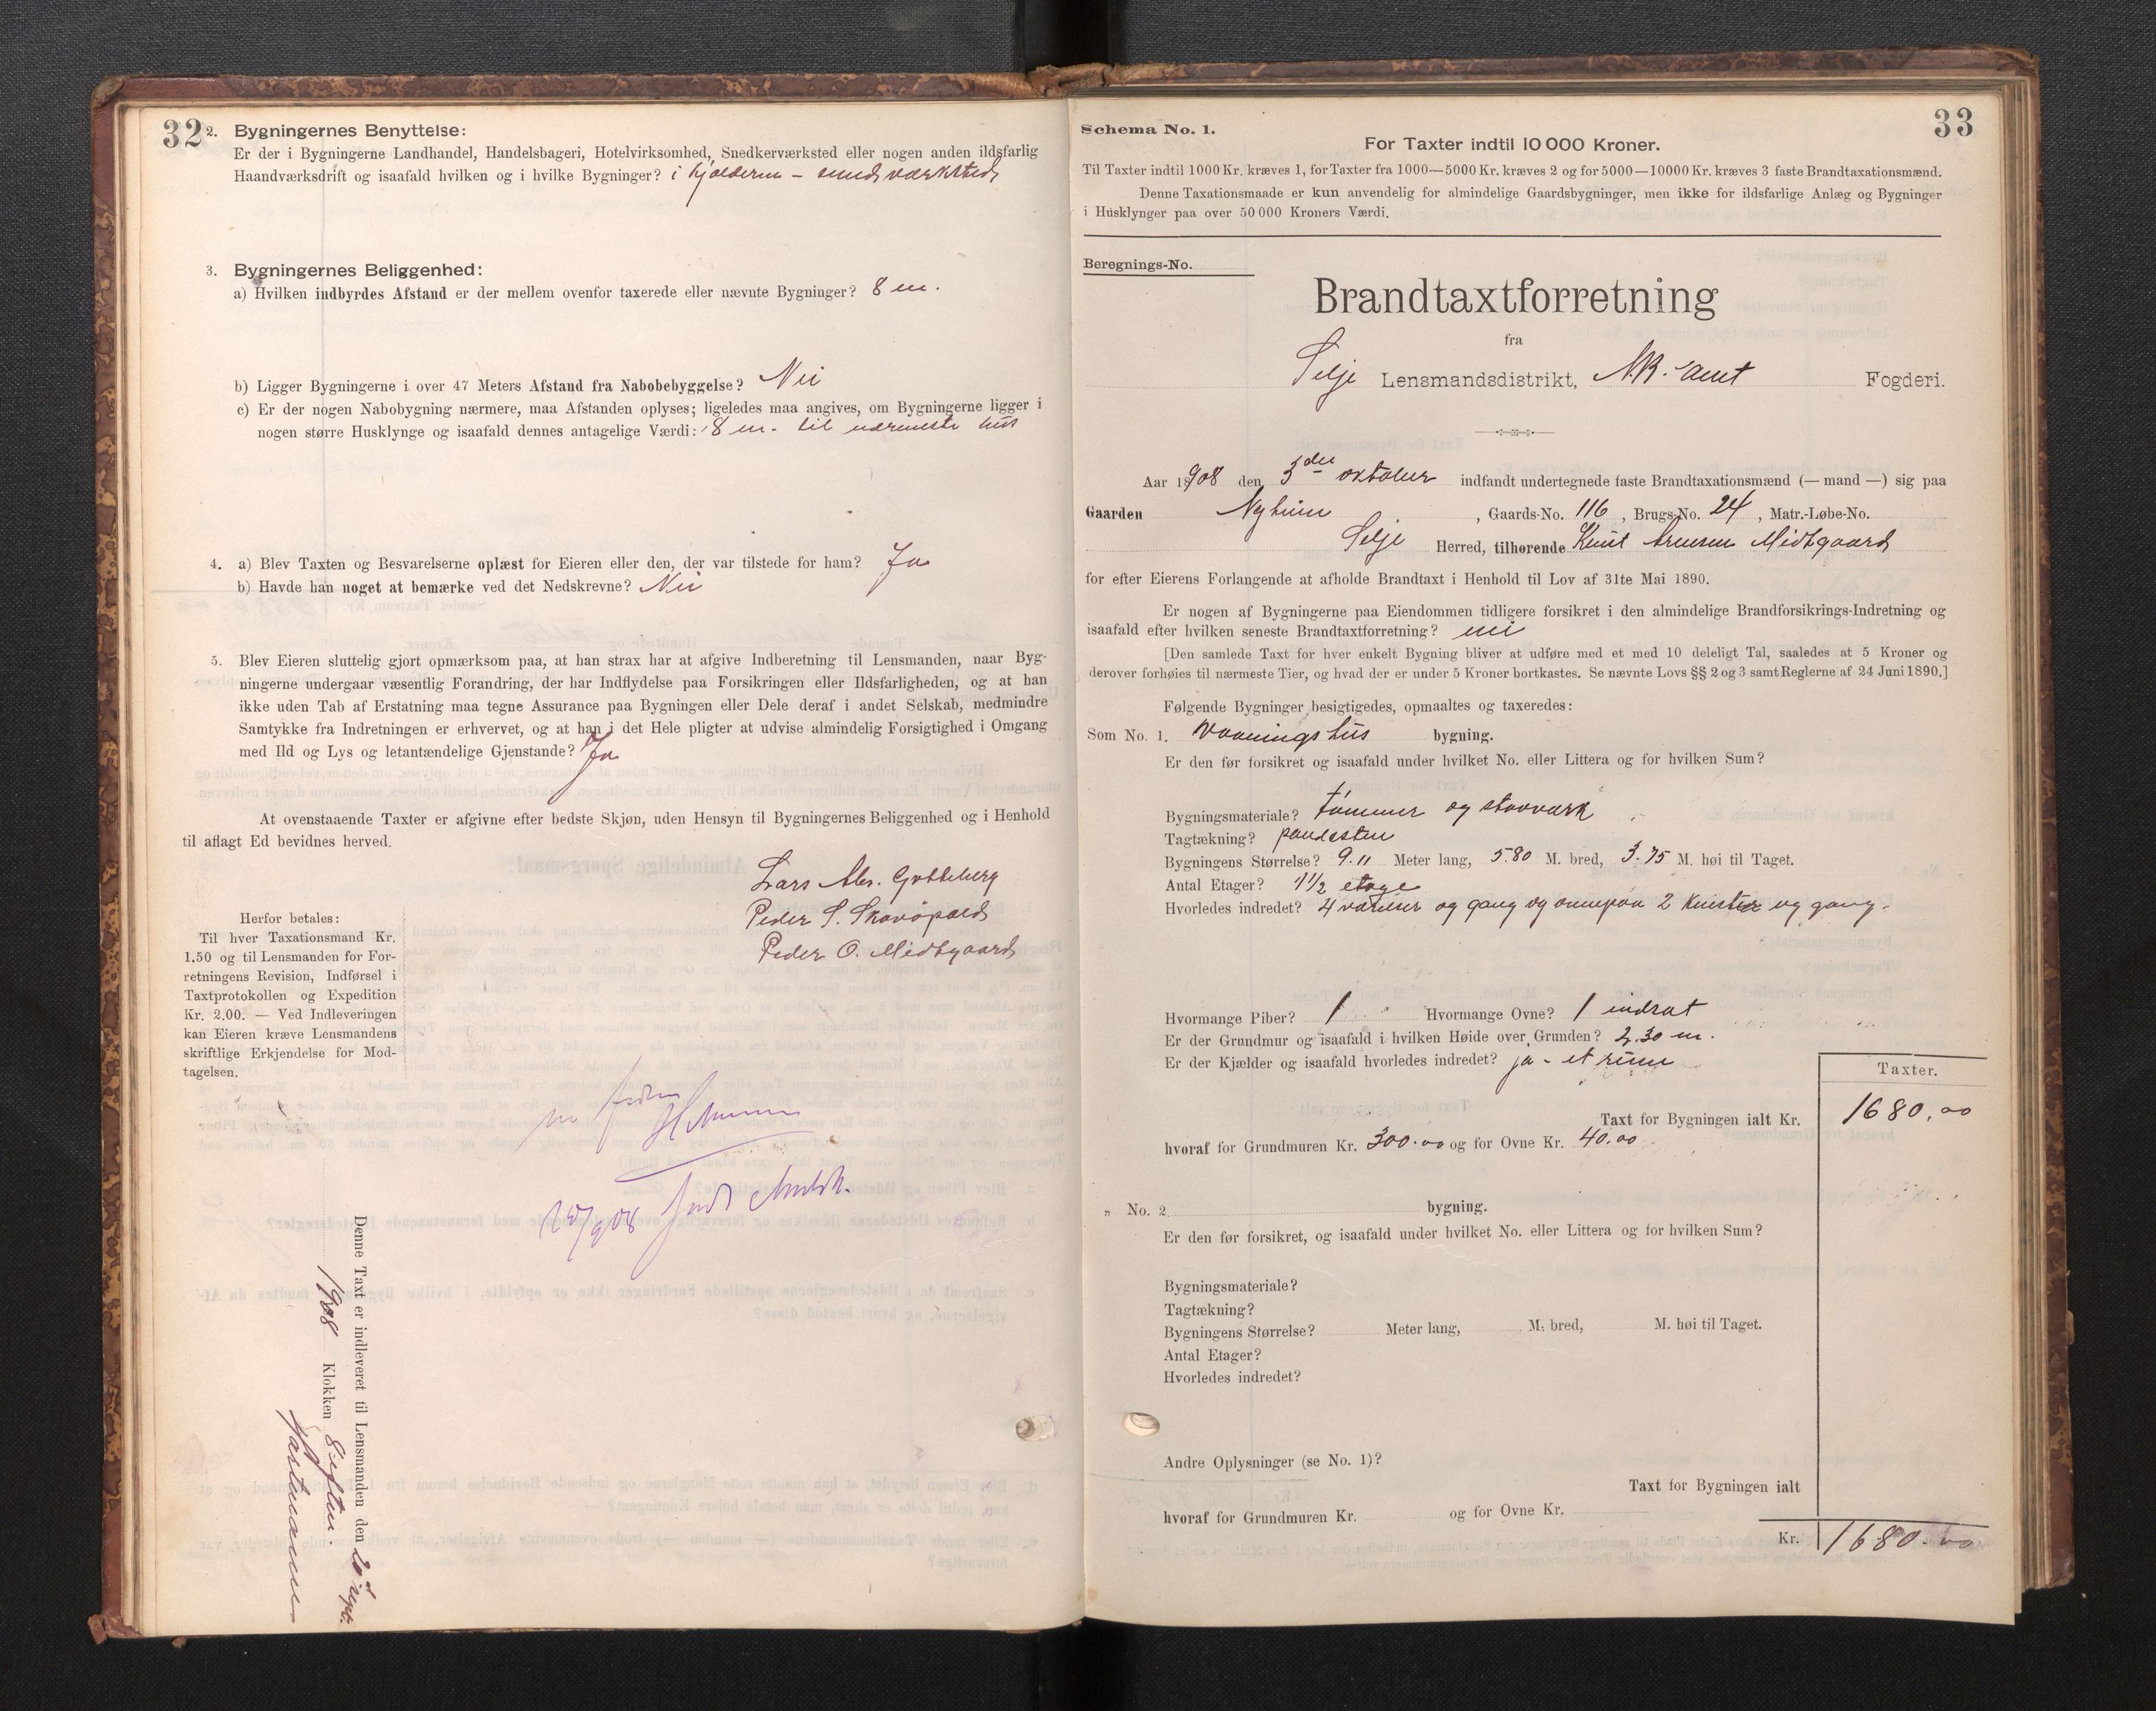 32
2. Bygningernes Benyttelse:
Er der i Bygningerne Landhandel, Handelsbageri, Hotelvirksomhed, Snedkerværksted eller nogen anden ildsfarlig
Haandværksdrift og isaafald hvilken og i hvilke Bygninger? i kjælderen - smedværksted
3. Bygningernes Beliggenhed:
a) Hvilken indbyrdes Afstand er der mellem ovenfor taxerede eller nævnte Bygninger? 8 m.
b) Ligger Bygningerne i over 47 Meters Afstand fra Nabobebyggelse? Nei
c) Er der nogen Nabobygning nærmere, maa Afstanden oplyses; ligeledes maa angives, om Bygningerne ligger i
nogen større Husklynge og isaafald dennes antagelige Værdi: 8 m. til nærmeste hus
4. a) Blev Taxten og Besvarelserne oplæst for Eieren eller den, der var tilstede for ham? Ja
b) Havde han noget at bemærke ved det Nedskrevne? Nei
5. Blev Eieren sluttelig gjort opmærksom paa, at han strax har at afgive Indberetning til Lensmanden, naar Byg-
ningerne undergaar væsentlig Forandring, der har Indflydelse paa Forsikringen eller Ildsfarligheden, og at han
ikke uden Tab af Erstatning maa tegne Assurance paa Bygningen eller Dele deraf i andet Selskab, medmindre
Samtykke fra Indretningen er erhvervet, og at han i det Hele pligter at udvise almindelig Forsigtighed i Omgang
med Ild og Lys og letantændelige Gjenstande? Ja
At ovenstaaende Taxter er afgivne efter bedste Skjøn, uden Hensyn til Bygningernes Beliggenhed og i Henhold
til aflagt Ed bevidnes herved.
Lars Abr.
Peder S.
Peder O. Midtgaard
Herfor betales:
Til hver Taxationsmand Kr.
1.50 og til Lensmanden for For-
retningens Revision, Indførsel i
Taxtprotokollen og Expedition
Kr. 2.00. — Ved Indleveringen
kan Eieren kræve Lensmandens
skriftlige Erkjendelse for Mod-
tagelsen.
Denne Taxt er indleveret til Lensmanden den sept.
1908 Klokken 8 efterm.
33
Schema No. 1.
For Taxter indtil 10 000 Kroner.
Til Taxter indtil 1000 Kr. kræves 1, for Taxter fra 1000—5000 Kr. kræves 2 og for 5000—10000 Kr. kræves 3 faste Brandtaxationsmænd.
Denne Taxationsmaade er kun anvendelig for almindelige Gaardsbygninger, men ikke for ildsfarlige Anlæg og Bygninger
i Husklynger paa over 50 000 Kroners Værdi.
Beregnings-No.
Brandtaxtforretning
fra
Selje Lensmandsdistrikt, N.B. Amt Fogderi.
Aar 1908 den 3die oktober indfandt undertegnede faste Brandtaxationsmænd (— mand —) sig paa
Gaarden Nyheim, Gaards-No. 116, Brugs-No. 24, Matr.-Løbe-No.
Selje Herred, tilhørende Knut Arensen Midtgaard
for efter Eierens Forlangende at afholde Brandtaxt i Henhold til Lov af 31te Mai 1890.
Er nogen af Bygningerne paa Eiendommen tidligere forsikret i den almindelige Brandforsikrings-Indretning og
isaafald efter hvilken seneste Brandtaxtforretning? nei
[Den samlede Taxt for hver enkelt Bygning bliver at udføre med et med 10 deleligt Tal, saaledes at 5 Kroner og
derover forhøies til nærmeste Tier, og hvad der er under 5 Kroner bortkastes. Se nævnte Lovs §§ 2 og 3 samt Reglerne af 24 Juni 1890.]
Følgende Bygninger besigtigedes, opmaaltes og taxeredes:
Som No. 1. vaaningshus bygning.
Er den før forsikret og isaafald under hvilket No. eller Littera og for hvilken Sum?
Bygningsmateriale? tømmer og stavværk
Tagtækning? pandesten
Bygningens Størrelse? 9.11 Meter lang, 5.80 M. bred, 3.75 M. høi til Taget.
Antal Etager? 1 1/2 etage
Hvorledes indredet? 4 værelser og gang og ovenpaa 2 kvister og gang.
Hvormange Piber? 1 Hvormange Ovne? 1 indsat
Er der Grundmur og isaafald i hvilken Høide over Grunden? 2.30 m.
Er der Kjælder og isaafald hvorledes indredet? ja - et rum
Taxter.
Taxt for Bygningen ialt Kr. 1680.00
hvoraf for Grundmuren Kr. 300.00 og for Ovne Kr. 40.00
„ No. 2 bygning.
Er den før forsikret, og isaafald under hvilket No. eller Littera og for hvilken Sum?
Bygningsmateriale?
Tagtækning?
Bygningens Størrelse? Meter lang, M. bred, M. høi til Taget.
Antal Etager?
Hvorledes indredet?
Andre Oplysninger (se No. 1)?
Taxt for Bygningen ialt
hvoraf for Grundmuren Kr. og for Ovne Kr.
Kr. 1680.00